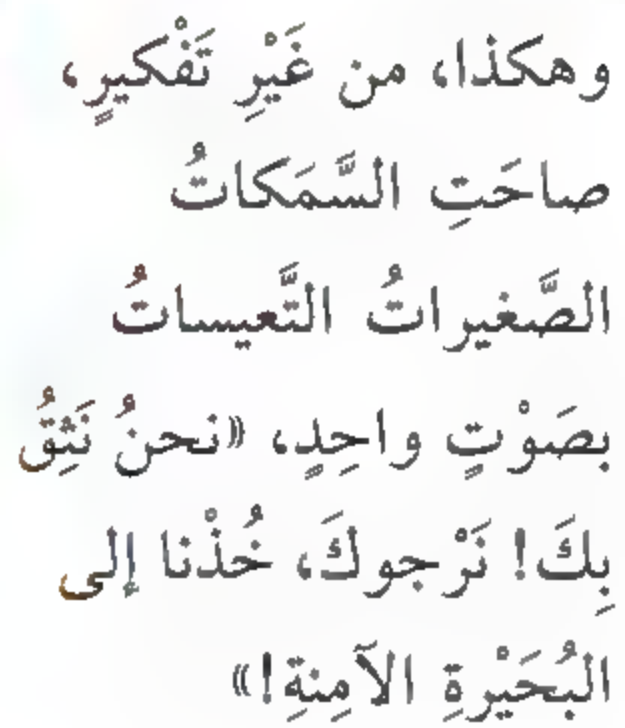 وهكذا، من غَيْرِ تَفْكيرٍ،
صاحَتِ السَّمَكاتُ
الصَّغيراتُ التَّعيساتُ
بصَوْتٍ واحِدٍ، «نحنُ نَثِقُ
بِكَ! نَرْجوكَ، خُذْنا إلى
البُحَيْرةِ الآمِنةِ!»